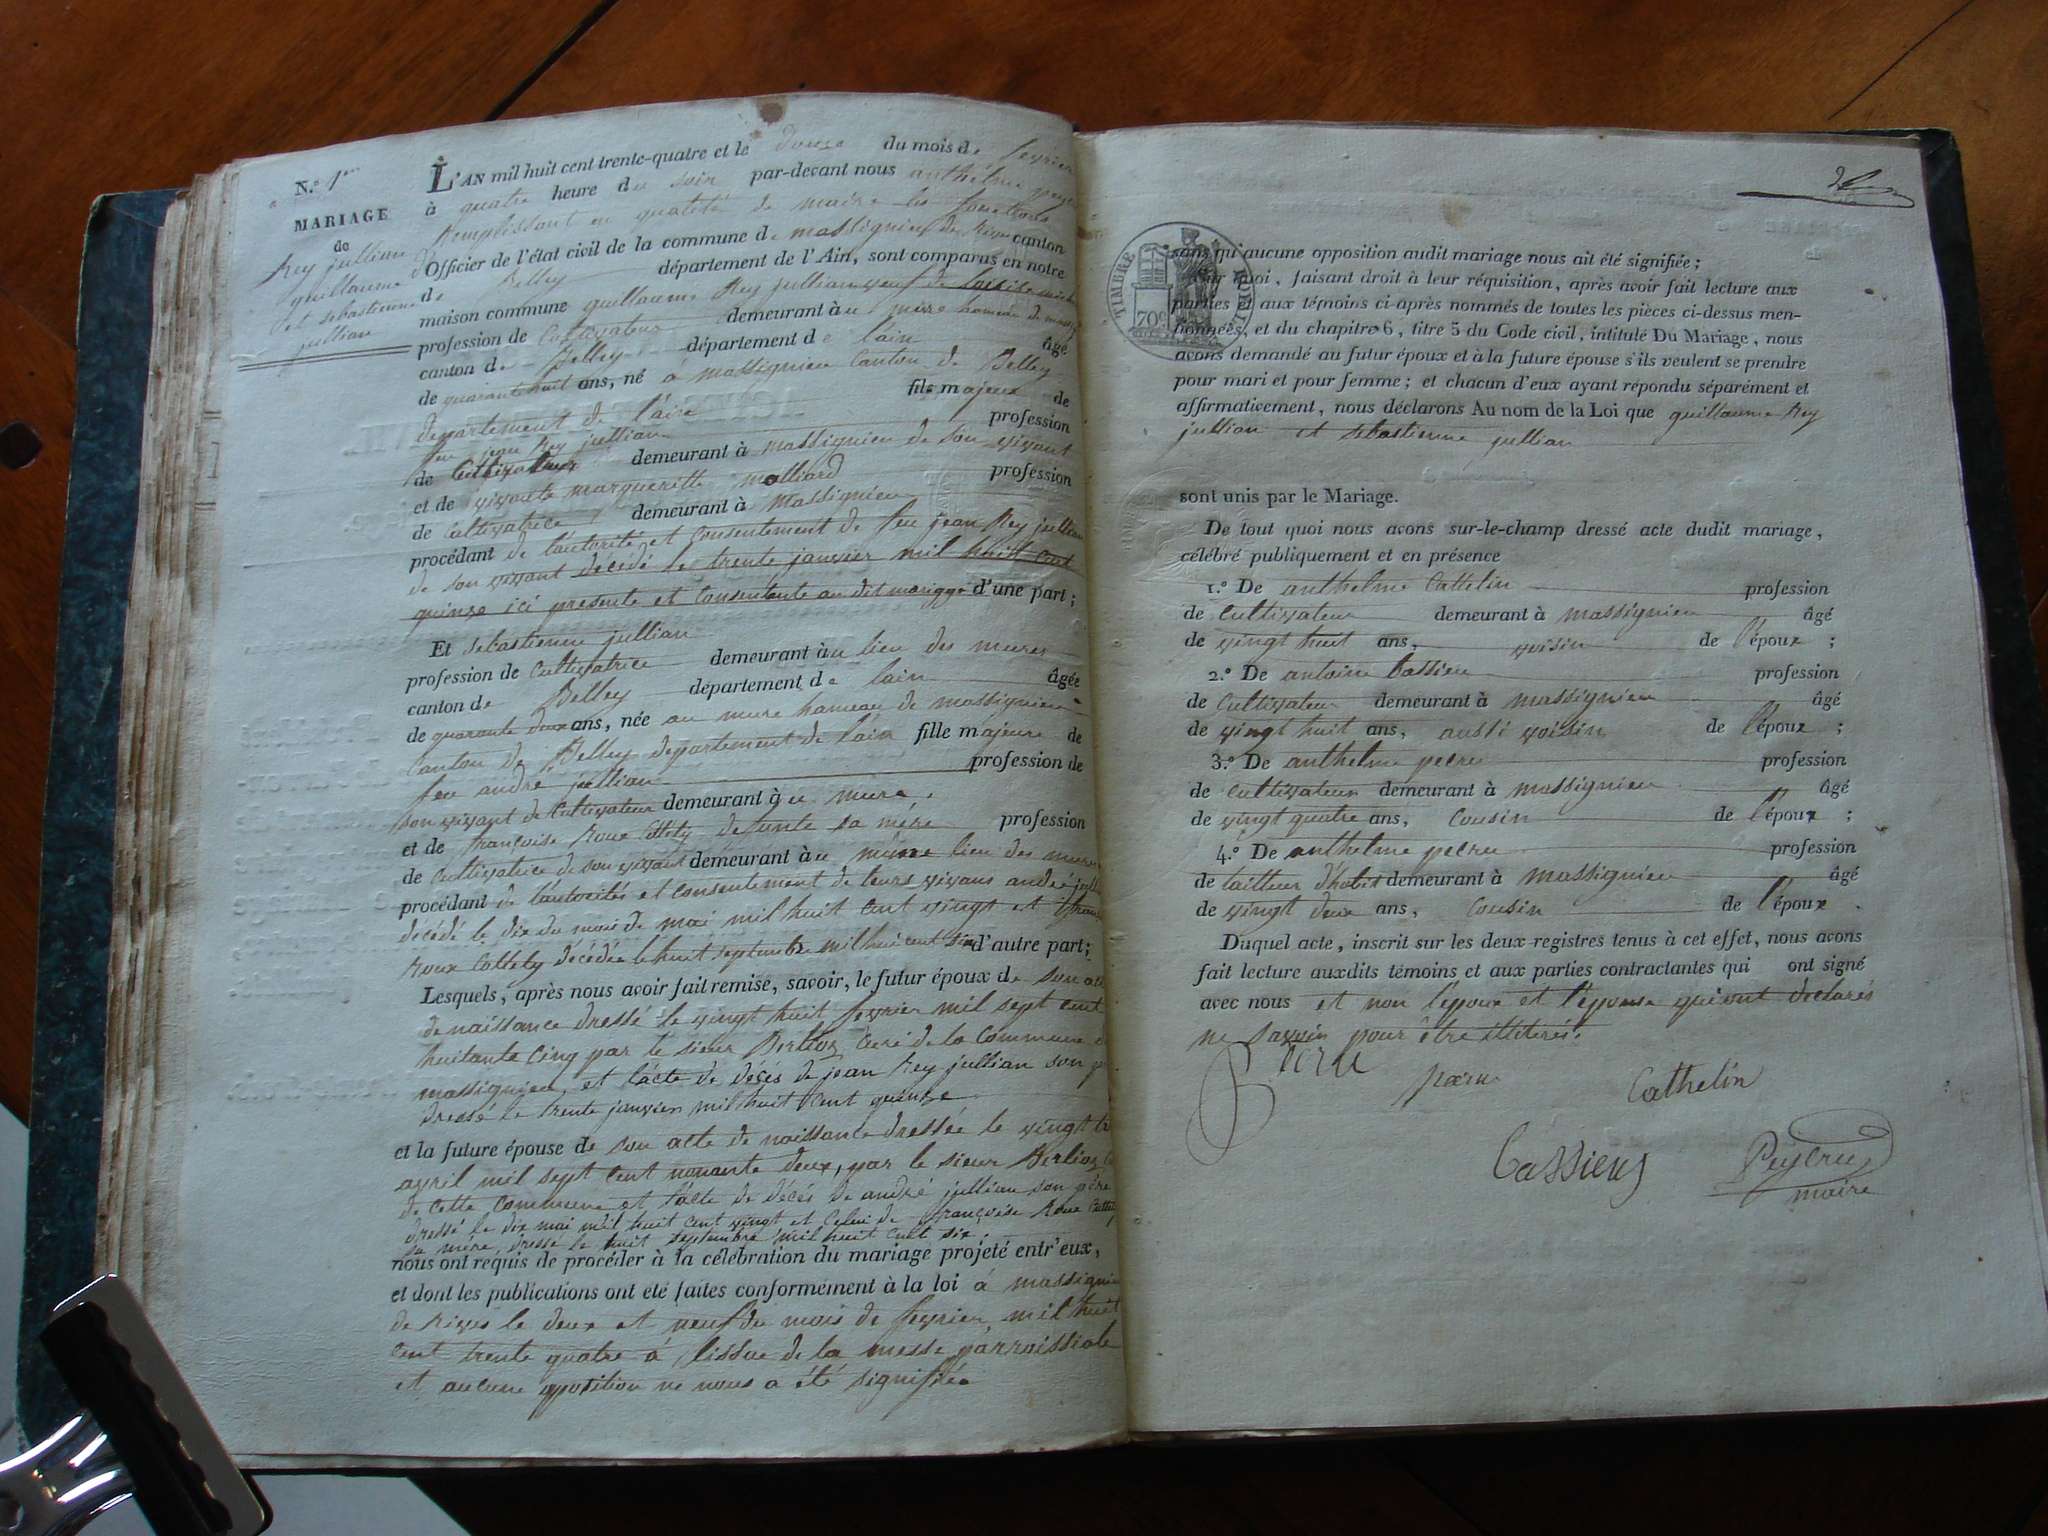 N.o 1er
MARIAGE
de
Rey jullian
guillaume
et sebastienne
jullian
L'AN mil huit cent trente-quatre et le douze du mois de fevrier
à quatre heure du soir par-devant nous anthelme
Remplissant en qualité de maire les fonctions
d'Officier de l'état civil de la commune de massignieu de Rives canton
de Belley département de l'Ain, sont comparus en notre
maison commune guillaume Rey jullian veuf de
profession de Cultivateur demeurant au mure hameau de
canton de Belley département de l'ain âgé
de quarante huit ans, né a massignieu Canton de Belley
departement de l'ain fils majeur de
feu jean Rey jullian profession
de Cultivateur demeurant à massignieu de son vivant
et de vivante margueritte molliard profession
de Cultivatrice demeurant à Massignieu
procédant de l'autorité et consentement de feu jean Rey jullian
de son vivant décédé le trente janvier mil huit cent
quinze ici presente et Consentante au dit mariage d'une part;
Et sebastienne jullian
profession de Cultivatrice demeurant au lieu des mures
canton de Belley département de lain âgée
de quarante deux ans, née au mure hameau de massignieu
Canton de Belley departement de l'ain fille majeure de
feu andré jullian profession de
son vivant de Cultivateur demeurant au mure.
et de françoise Roux Collety defunte sa mére profession
de Cultivatrice de son vivant demeurant au même lieu des mures
procédant de l'autorités et consentement de leurs vivans andré
décédé le dix du mois de mai mil huit cent vingt et
Roux Collety décédée le huit septembre mil huit cent six d'autre part;
Lesquels, après nous avoir fait remise, savoir, le futur époux de son
de naissance dressé le vingt huit fevrier mil sept cent
huitante cinq par le sieur Berlioz Curé de la Commune
massignieu, et l'acte de décès de jean Rey jullian son
dressé le trente janvier mil huit cent quinze
et la future épouse de son acte de naissance dressée le vingt
avril mil sept cent nonante deux, par le sieur Berlioz
de cette commune et l'acte de décés de andré jullian son pére
dressé le dix mai mil huit cent vingt et Celui de françoise Roux
sa mére, dressé le huit septembre mil huit cent six.
nous ont requis de procéder à la célébration du mariage projeté entr'eux,
et dont les publications ont été faites conformément à la loi á massignieu
de Rives le deux et neuf du mois de fevrier mil huit
cent trente quatre á l'issue de la messe parroissiale
et aucune opposition ne nous a été signifiée
TIMBRE ROYAL
70c
sans qu'aucune opposition audit mariage nous ait été signifiée;
Sur quoi, faisant droit à leur réquisition, après avoir fait lecture aux
parties et aux témoins ci-après nommés de toutes les pièces ci-dessus men-
tionnées, et du chapitre 6, titre 5 du Code civil, intitulé Du Mariage, nous
avons demandé au futur époux et à la future épouse s'ils veulent se prendre
pour mari et pour femme; et chacun d'eux ayant répondu séparément et
affirmativement, nous déclarons Au nom de la Loi que guillaume Rey
jullian et sebastienne jullian
sont unis par le Mariage.
De tout quoi nous avons sur-le-champ dressé acte dudit mariage,
célébré publiquement et en présence
1.o De anthelme Cattelin profession
de Cultivateur demeurant à massignieu âgé
de vingt huit ans, voisin de l'époux ;
2.o De antoine Cassieu profession
de Cultivateur demeurant à massignieu âgé
de vingt huit ans, aussi voisin de l'époux ;
3.o De anthelme pecru profession
de Cultivateur demeurant à massignieu âgé
de vingt quatre ans, Cousin de l'époux ;
4.o De anthelme pecru profession
de tailleur d'habit demeurant à massignieu âgé
de vingt deux ans, Cousin de l'époux .
Duquel acte, inscrit sur les deux registres tenus à cet effet, nous avons
fait lecture auxdits témoins et aux parties contractantes qui ont signé
avec nous et non l'epoux et l'epouse qui ont declarés
ne savoir pour être illiterés.
Cathelin
Cassieux
Peycru
maire